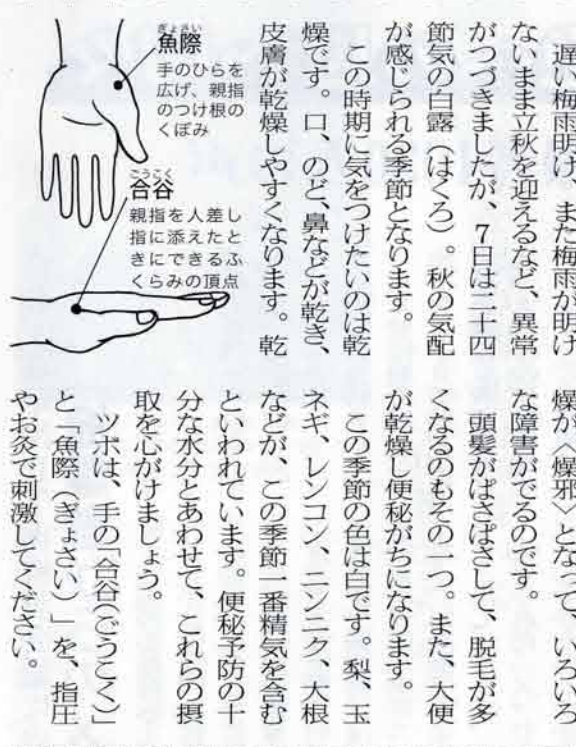 遅い梅雨明け。また梅雨が明け
ないまま立秋を迎えるなど、異常
がつづきましたが、7日は二十四
節気の白露（はくろ）。秋の気配
が感じられる季節となります。
この時期に気をつけたいのは乾
燥です。口、のど、鼻などが乾き、
皮膚が乾燥しやすくなります。乾
燥が〈燥邪〉となって、いろいろ
な障害がでるのです。
頭髪がぱさぱさして、脱毛が多
くなるのもその一つ。また、大便
が乾燥し便秘がちになります。
この季節の色は白です。梨、玉
ネギ、レンコン、ニンニク、大根
などが、この季節一番精気を含む
といわれています。便秘予防の十
分な水分とあわせて、これらの摂
取を心がけましょう。
ツボは、手の「合谷（ごうこく）」
と「魚際（ぎょさい）」を、指圧
やお灸で刺激してください。
ぎょさい
魚際
手のひらを
広げ、親指
のつけ根の
くぼみ
ごうこく
合谷
親指を人差し
指に添えたと
きにできるふ
くらみの頂点